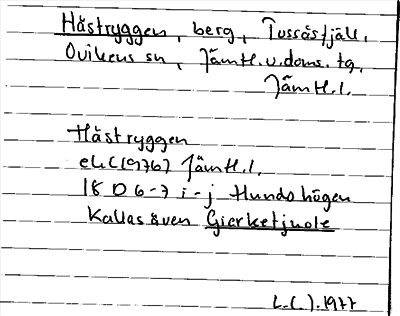 Hästryggen, berg, Tossåsfjäll,
Ovikens sn, Jämtl. v. doms. tg,
Jämtl. l.
Hästryggen
ekC(1976) Jämtl. l.
18 D 6-7 i-j Hundshögen
Kallas även Gierketjuole
1977